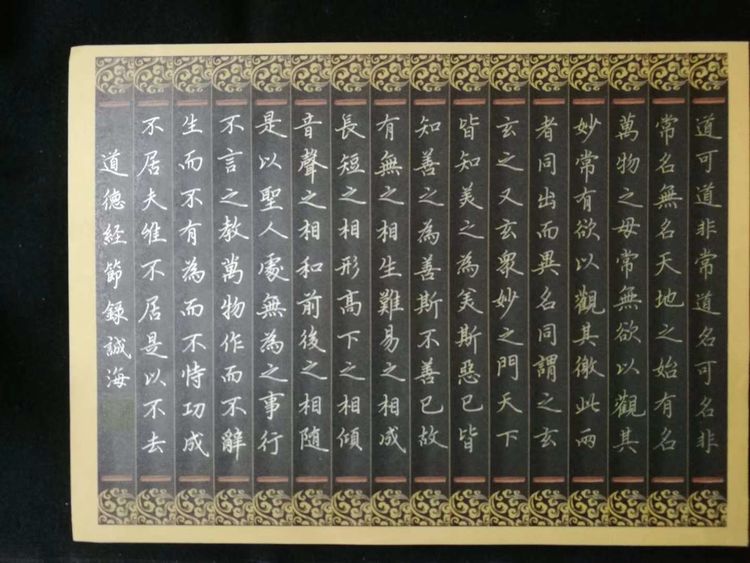 道可道非常道名可名非
常名無名天地之始有名
萬物之母常無欲以觀其
妙常有欲以觀其徼此兩
者同出而異名同謂之玄
玄之又玄眾妙之門天下
皆知美之為美斯惡已皆
知善之為善斯不善已故
有無之相生難易之相成
長短之相形高下之相傾
音聲之相和前後之相隨
是以聖人處無為之事行
不言之教萬物作而不辭
生而不有為而不恃功成
不居夫維不居是以不去
道德経節錄誠海